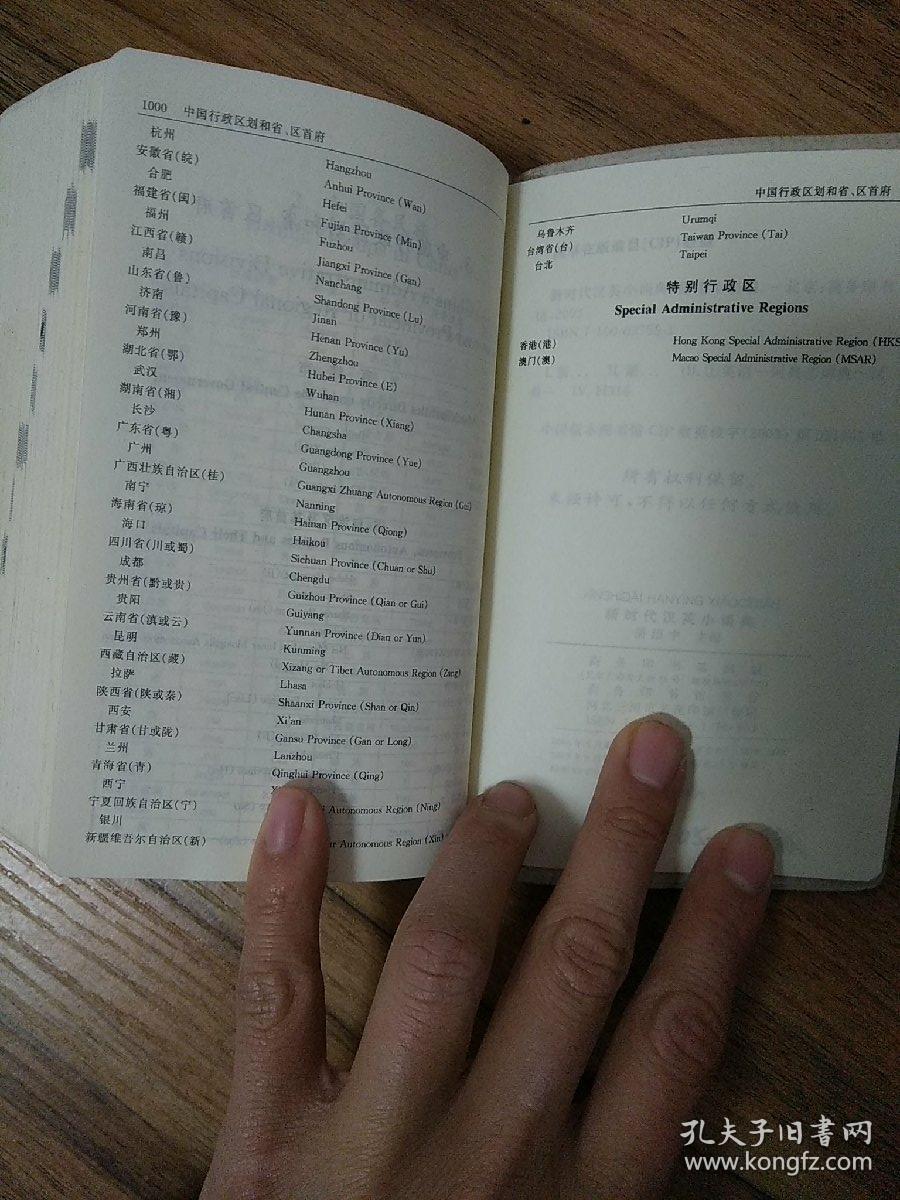 1000 中国行政区划和省、区首府
杭州 Hangzhou
安徽省(皖) Anhui Province (Wan)
合肥 Hefei
福建省(闽) Fujian Province (Min)
福州 Fuzhou
江西省(赣) Jiangxi Province (Gan)
南昌 Nanchang
山东省(鲁) Shandong Province (Lu)
济南 Jinan
河南省(豫) Henan Province (Yu)
郑州 Zhengzhou
湖北省(鄂) Hubei Province (E)
武汉 Wuhan
湖南省(湘) Hunan Province (Xiang)
长沙 Changsha
广东省(粤) Guangdong Province (Yue)
广州 Guangzhou
广西壮族自治区(桂) Guangxi Zhuang Autonomous Region (Gui)
南宁 Nanning
海南省(琼) Hainan Province (Qiong)
海口 Haikou
四川省(川或蜀) Sichuan Province (Chuan or Shu)
成都 Chengdu
贵州省(黔或贵) Guizhou Province (Qian or Gui)
贵阳 Guiyang
云南省(滇或云) Yunnan Province (Dian or Yun)
昆明 Kunming
西藏自治区(藏) Xizang or Tibet Autonomous Region (Zang)
拉萨 Lhasa
陕西省(陕或秦) Shaanxi Province (Shan or Qin)
西安 Xi'an
甘肃省(甘或陇) Gansu Province (Gan or Long)
兰州 Lanzhou
青海省(青) Qinghui Province (Qing)
西宁
宁夏回族自治区(宁) Autonomous Region (Ning)
银川
新疆维吾尔自治区(新) Autonomous Region (Xin)
中国行政区划和省、区首府
乌鲁木齐 Urumqi
台湾省(台) Taiwan Province (Tai)
台北 Taipei
特别行政区
Special Administrative Regions
香港(港) Hong Kong Special Administrative Region (HKS
澳门(澳) Macao Special Administrative Region (MSAR)
孔夫子旧书网
www.kongfz.com